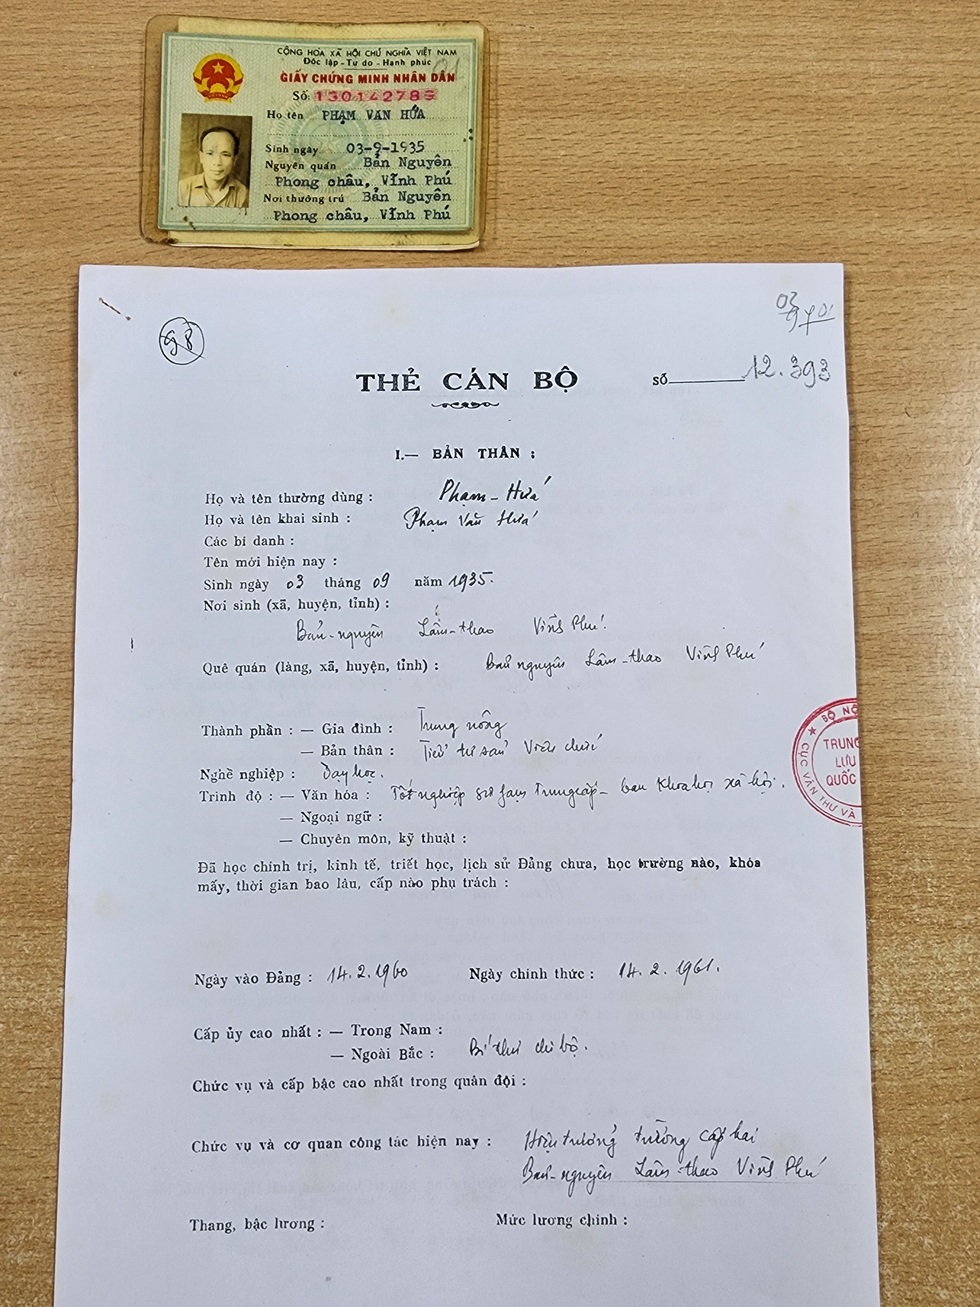 CỘNG HÒA XÃ HỘI CHỦ NGHĨA VIỆT NAM
Độc lập - Tự do - Hạnh phúc
GIẤY CHỨNG MINH NHÂN DÂN
Số: 130142789
Họ tên PHẠM VĂN HỨA
Sinh ngày 03-9-1935
Nguyên quán Bản Nguyên
Phong châu, Vĩnh Phú
Nơi thường trú Bản Nguyên
Phong châu, Vĩnh Phú
98
THẺ CÁN BỘ
số 12.393
I.— BẢN THÂN :
Họ và tên thường dùng : Phạm - Hứa
Họ và tên khai sinh : Phạm Văn Hứa
Các bí danh :
Tên mới hiện nay :
Sinh ngày 03 tháng 09 năm 1935.
Nơi sinh (xã, huyện, tỉnh) :
Bản-nguyên Lâm-thao Vĩnh Phú.
Quê quán (làng, xã, huyện, tỉnh) : Bản nguyên Lâm-thao Vĩnh Phú
Thành phần : — Gia đình : Trung nông
— Bản thân : Tiểu tư sản Viên chức
Nghề nghiệp : Dạy học.
Trình độ : — Văn hóa : Tốt nghiệp sư fạm Trung cấp - ban Khoa học xã hội.
— Ngoại ngữ :
— Chuyên môn, kỹ thuật :
Đã học chính trị, kinh tế, triết học, lịch sử Đảng chưa, học trường nào, khóa
mấy, thời gian bao lâu, cấp nào phụ trách :
Ngày vào Đảng : 14.2.1960 Ngày chính thức : 14.2.1961.
Cấp ủy cao nhất : — Trong Nam :
— Ngoài Bắc : Bí thư chi bộ.
Chức vụ và cấp bậc cao nhất trong quân đội :
Chức vụ và cơ quan công tác hiện nay : Hiệu trưởng trường cấp hai
Bản-nguyên Lâm-thao Vĩnh Phú
Thang, bậc lương : Mức lương chính :
TRUNG
LƯU
QUỐC
CỤC VĂN THƯ VÀ